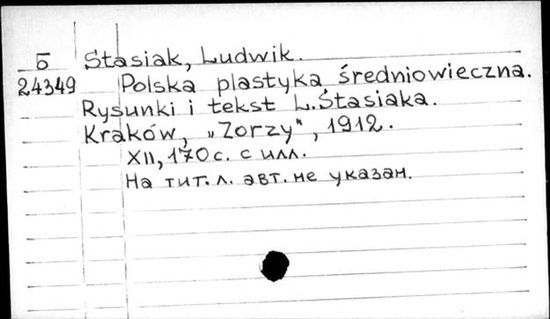 Б Stasiak, Ludwik.
24349 Polska plastyka średniowieczna.
Rysunki i tekst L. Stasiaka.
Kraków, „Zorzy", 1912.
XII, 170 с. с илл.
На тит. л. авт. не указан.